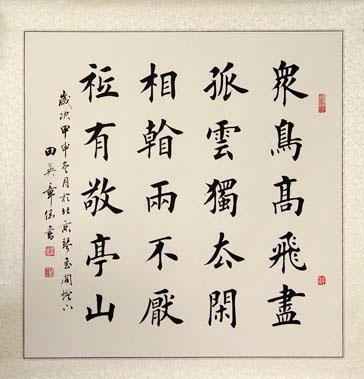 衆鳥高飛盡
孤雲獨厺閑
相看兩不厭
祗有敬亭山
歲次甲申冬月於北京琴
田英章書